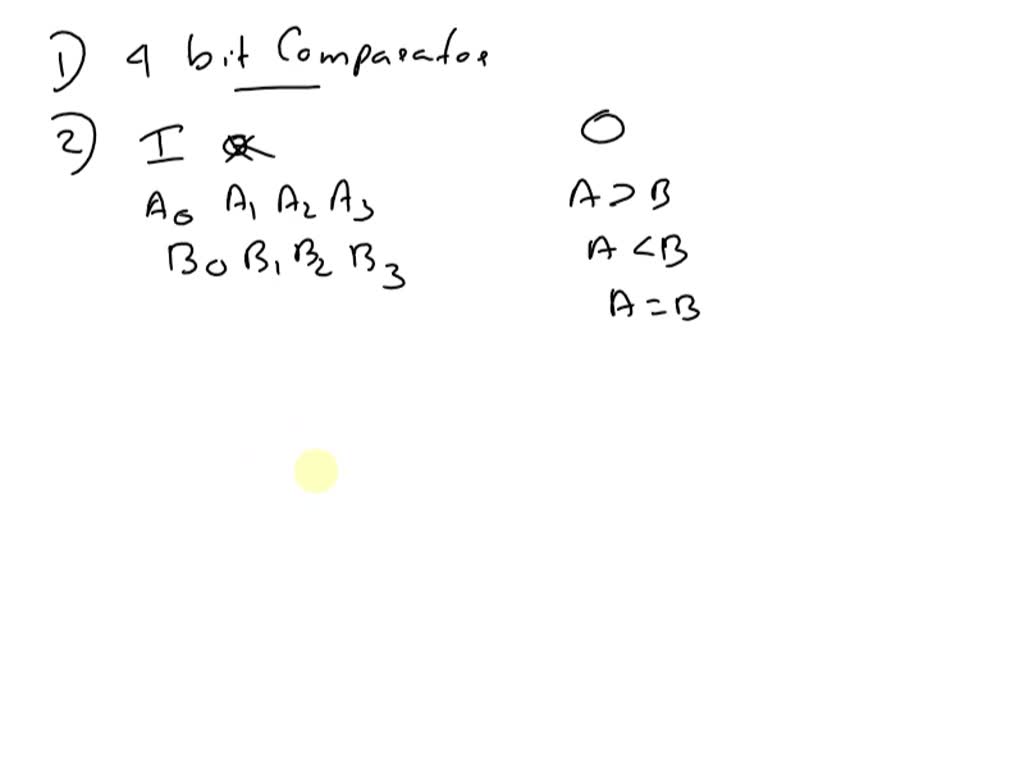 1) 4 bit Comparator
2) I O
A0 A1 A2 A3 A > B
B0 B1 B2 B3 A < B
A = B